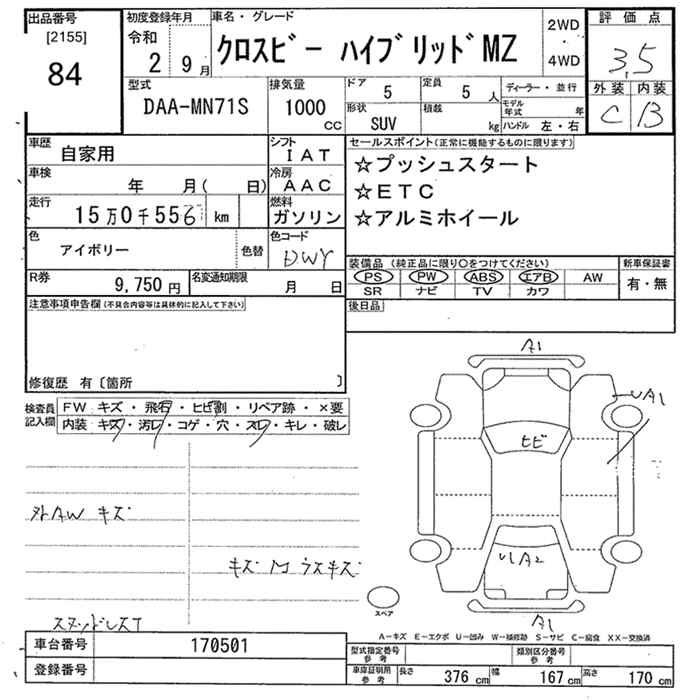 出品番号 初度登録年月 車名・グレード 2WD 評価点
[2155] 令和
84 2 9月 クロスビー ハイブリッドMZ 4WD 3.5
型式 排気量 ドア 5 定員 5人 ディーラー・並行 外装 内装
DAA-MN71S 1000 CC 形状 SUV 積載 kg モデル年式 年 C B
ハンドル 左・右
車歴 自家用 シフト IAT セールスポイント(正常に機能するものに限ります)
車検 年 月( 日) 冷房 AAC ☆プッシュスタート
☆ETC
走行 15万0千556km 燃料 ガソリン ☆アルミホイール
色 アイボリー 色替 色コード DWY
装備品 (純正品に限り○をつけてください) 新車保証書
R券 9,750円 名変通知期限 月 日 PS PW ABS エアB AW 有・無
SR ナビ TV カワ
注意事項申告欄(不具合内容等は具体的に記入して下さい) 後日品
修復歴 有〔箇所 〕
検査員記入欄 FW キズ・飛石・ヒビ割・リペア跡・×要
内装・キズ・汚レ・コゲ・穴・スレ・キレ・破レ
A1
UA1
ヒビ
外AW キズ
UA2
キズ M ウスキズ
スペア
スタッドレスT
A1
A-キズ E-エクボ U-凹み W-補修跡 S-サビ C-腐食 XX-交換済
車台番号 170501
型式指定番号 参考 類別区分番号 参考
登録番号 車庫証明用 参考 長さ 376cm 幅 167cm 高さ 170cm